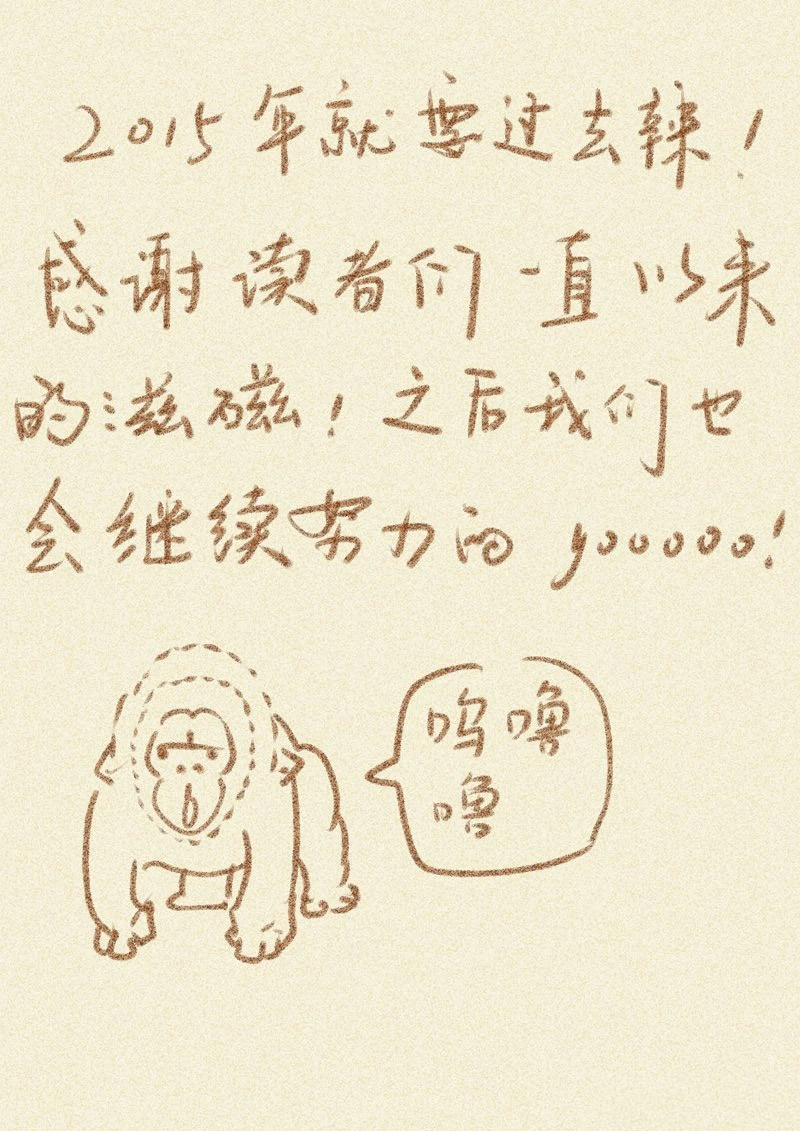 2015年就要过去辣！
感谢读者们一直以来
的滋磁！之后我们也
会继续努力的yooooo!
呜噜
噜